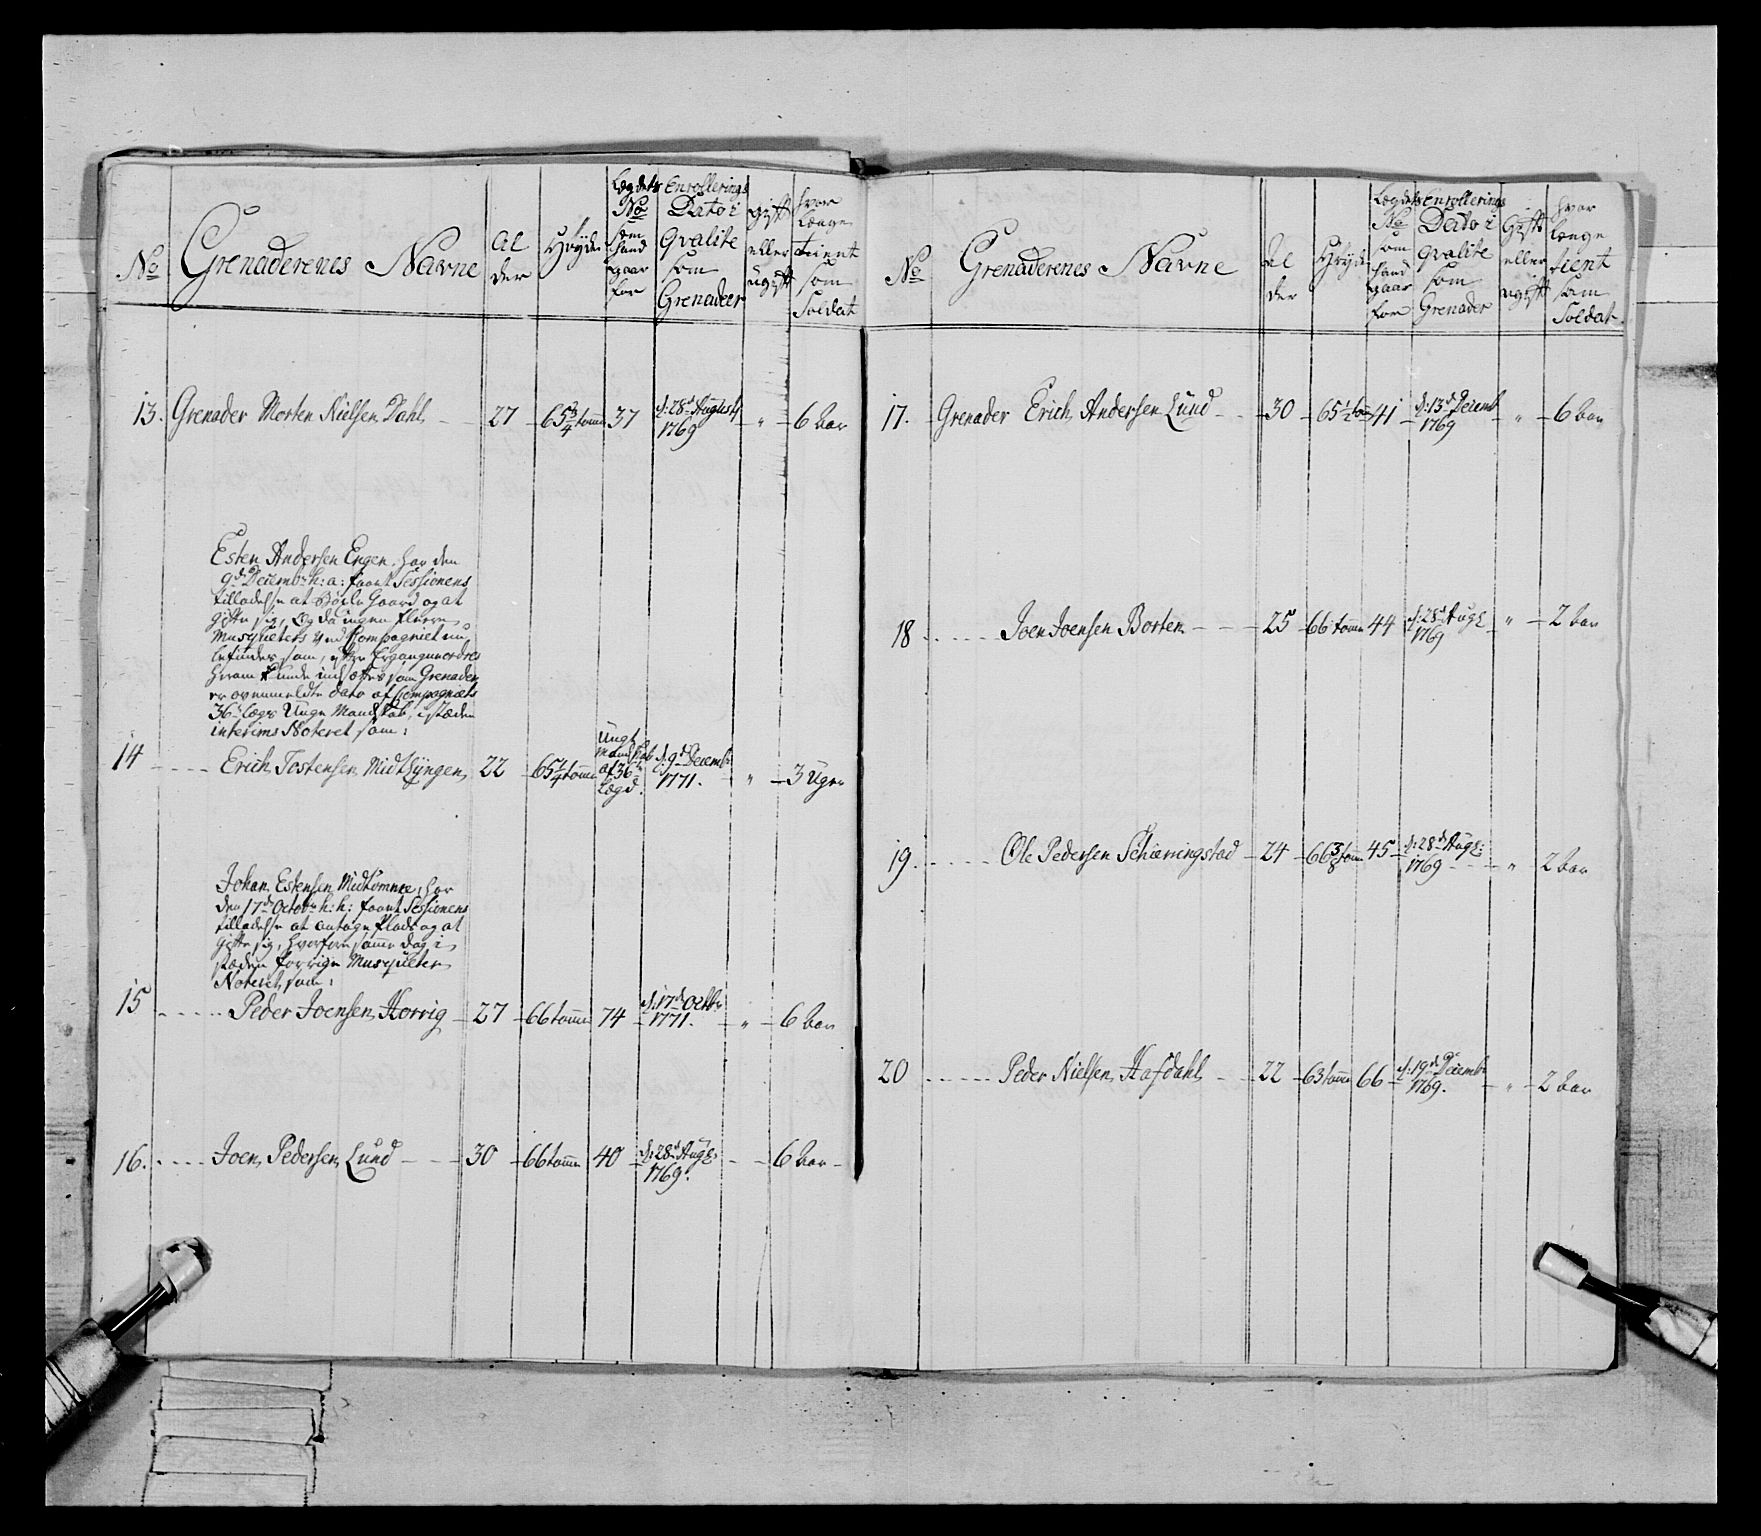 No Grenaderenes Navne Al der Høyde Lægdets No som hand gaar for Enrollerings Dato i Qvalite som Grenadeer gift eller ugift hvor længe tient som Soldat
13. Grenader Morten Nielsen Dahl 27 65 3/4 tomme 37 d: 28de Augusty 1769 " 6 Aar
Esten Andersen Engen, har den
9de Decembr h: a: faaet Sessionens
tilladelse at Bøxle Gaard og at
gifte sig, Og da ingen fleere
Musqueterer ved Compagniet nu
befindes som, efter Ergangne ordres
herom kunde indsættes som Grenader
er ovenmeldte dato af Compagniets
36te Lægs Unge Mandskab, i stæden
interims Noteret som:
14 Erich Tostensen Midtlyngen 22 65 1/4 tomme Ungt Mandskab af 36te Lægd. d: 9de Decembr 1771. " 3 Uger
Johan Estensen Midtømme, har
den 17de Octobr h: h: faaet Sessionens
tilladelse at antage Plads og at
gifte sig, hvorfore samme dag i
stæden forrige Musqueteer
Noteret som:
15 Peder Joensen Horrig 27 66 tomme 74 d: 17de Octbr 1771. " 6 Aar
16. Joen Pedersen Lund 30 66 tomme 40 d: 28de Augt: 1769. 6 Aar
No Grenaderenes Navne Al der Høyde Lægdets No som hand gaar for Enrollerings Dato i Qvalite som Grenader Gift eller ugift hvor længe tient som Soldat
17. Grenader Erich Andersen Lund 30 65 1/2 tom 41 d: 13de Decemb 1769 " 6 Aar
18 Joen Joensen Borten 25 66 tomme 44 d: 28de Augt 1769 " 2 Aar
19. Ole Pedersen Schierringstad 24 66 3/8 tomm 45 d: 28de Augt: 1769 " 2 Aar
20 Peder Nielsen Hafdahl 22 63 tomme 66 d: 19de Decembr 1769. " 2 Aar